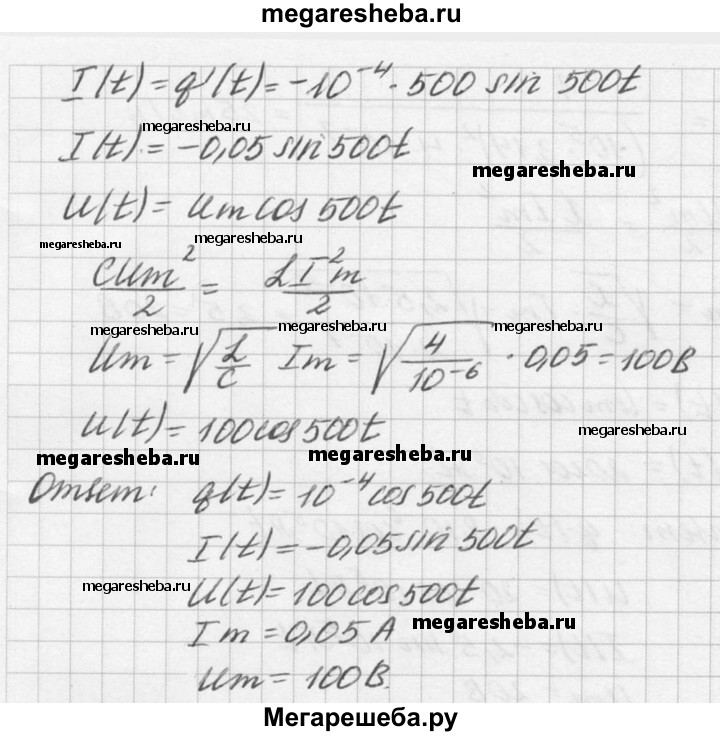 megaresheba.ru
I(t) = q'(t) = -10⁻⁴ · 500 sin 500t
megaresheba.ru
I(t) = -0,05 sin 500t
megaresheba.ru
U(t) = Um cos 500t
megaresheba.ru megaresheba.ru
CUm²/2 = LI²m/2
megaresheba.ru megaresheba.ru megaresheba.ru
Um = √(L/C) Im = √(4/10⁻⁶) · 0,05 = 100В
U(t) = 100cos500t
megaresheba.ru
megaresheba.ru megaresheba.ru
Ответ: q(t) = 10⁻⁴ cos 500t
I(t) = -0,05 sin 500t
megaresheba.ru
U(t) = 100cos500t
megaresheba.ru
Im = 0,05 А
Um = 100В.
Мегарешеба.ру